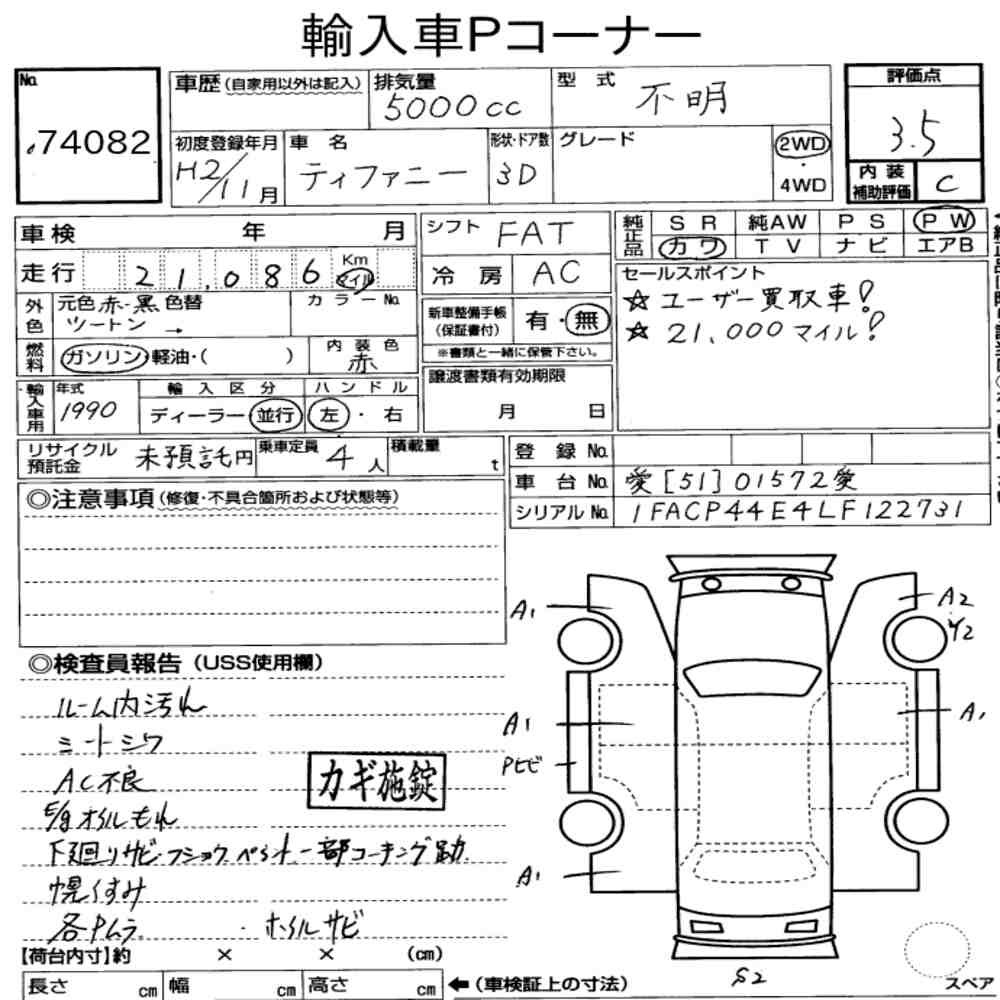 輸入車Pコーナー
No. 74082
車歴 (自家用以外は記入)
排気量 5000cc
型式 不明
評価点 3.5
初度登録年月 H2/11月
車名 ティファニー
形状・ドア数 3D
グレード
2WD・4WD
内装補助評価 C
車検 年 月
シフト FAT
純正品 SR 純AW PS PW
カワ TV ナビ エアB
走行 21,086 Km マイル
冷房 AC
セールスポイント
☆ユーザー買取車!
☆21,000マイル!
外色 元色 赤-黒 色替 ツートン→
カラーNo.
新車整備手帳(保証書付) 有・無
※書類と一緒に保管下さい。
燃料 ガソリン・軽油・( )
内装色 赤
譲渡書類有効期限
月 日
輸入車用 年式 1990
輸入区分 ディーラー・並行
ハンドル 左・右
リサイクル預託金 未預託円
乗車定員 4人
積載量 t
登録No.
車台No. 愛[51]01572愛
シリアルNo. 1FACP44E4LF122731
◎注意事項(修復・不具合箇所および状態等)
A1
A2
Y2
A1
A1
Pヒビ
A1
S2
スペア
◎検査員報告(USS使用欄)
ルーム内汚れ
シートシワ
AC不良
カギ施錠
E/gオイルもれ
下廻りサビ
一部コーキング
幌くすみ
各Pムラ ・ホイルサビ
【荷台内寸】約 × × (cm)
長さ cm 幅 cm 高さ cm
←(車検証上の寸法)